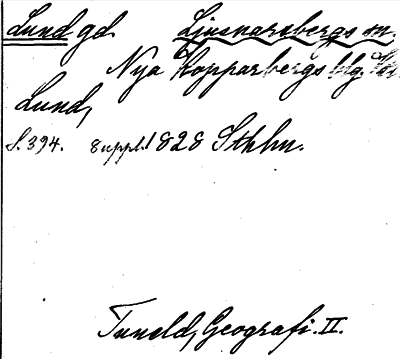 Lund gd. Ljusnarsbergs sn.
Nya Kopparbergs blg.
Lund,
S. 394. Suppl. 1828 Sthlm.
Tuneld, Geografi. II.